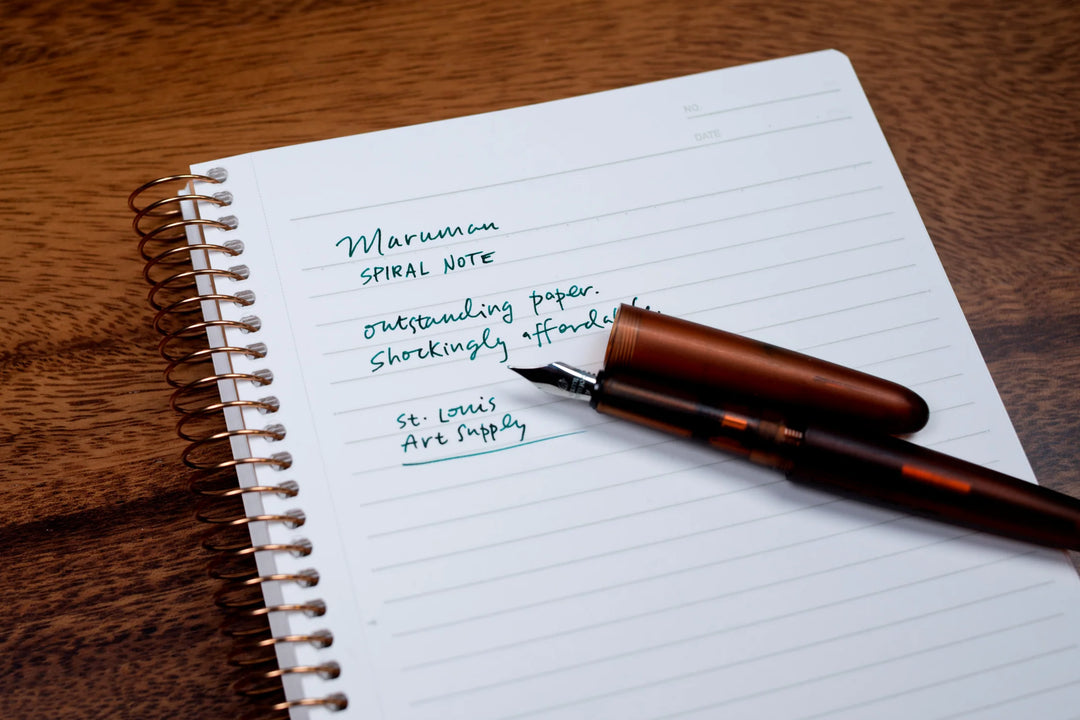 NO.
DATE
Maruman
SPIRAL NOTE
outstanding paper.
Shockingly
St. Louis
Art Supply